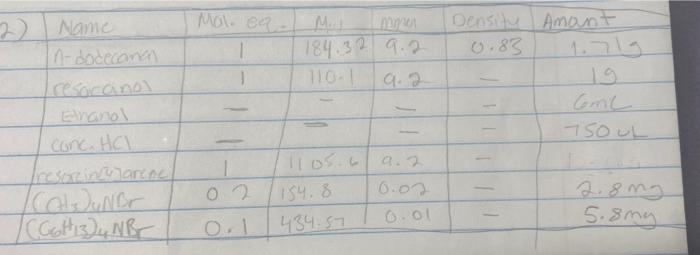 2) Name Mol. eq. M.l mmol Density Amant
n-dodecanal 1 184.32 9.2 0.83 1.71g
resorcinol 1 110.1 9.2 — 1g
Ethanol — — — — 6mL
conc. HCl — — — — 750uL
resorcin[4]arene 1 1105.6 9.2 —
(CH3)4NBr 0.2 154.8 0.02 — 2.8mg
(C6H13)4NBr 0.1 434.57 0.01 — 5.8mg